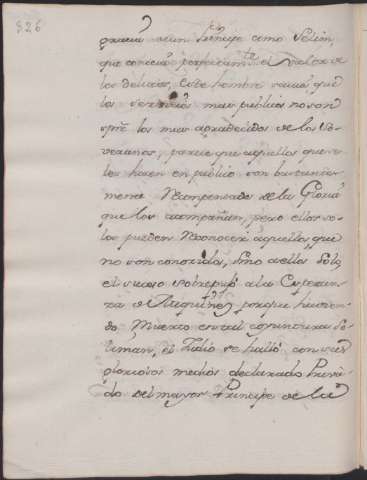 326
gracia a un Príncipe como Selim,
que conocia perfectam.te el valor de
los delicios, este hombre savia que
los servicios mas publicos no son
spre los mas agradecidos de los So-
veranos, parece que aquellos que se
les hacen en publico son bastante
mente Recompensados de la Gloria
que los acompañan, pero ellos so-
los pueden Reconocer aquellos que
no son conocidos, sino a ellos solos
el suceso sobrepujó a la Esperan-
za de porque havien-
do Muerto en tal coyuntura So-
liman, el Judio se halló con sus
gloriosos medios declarado Priva-
do del mayor Principe de la